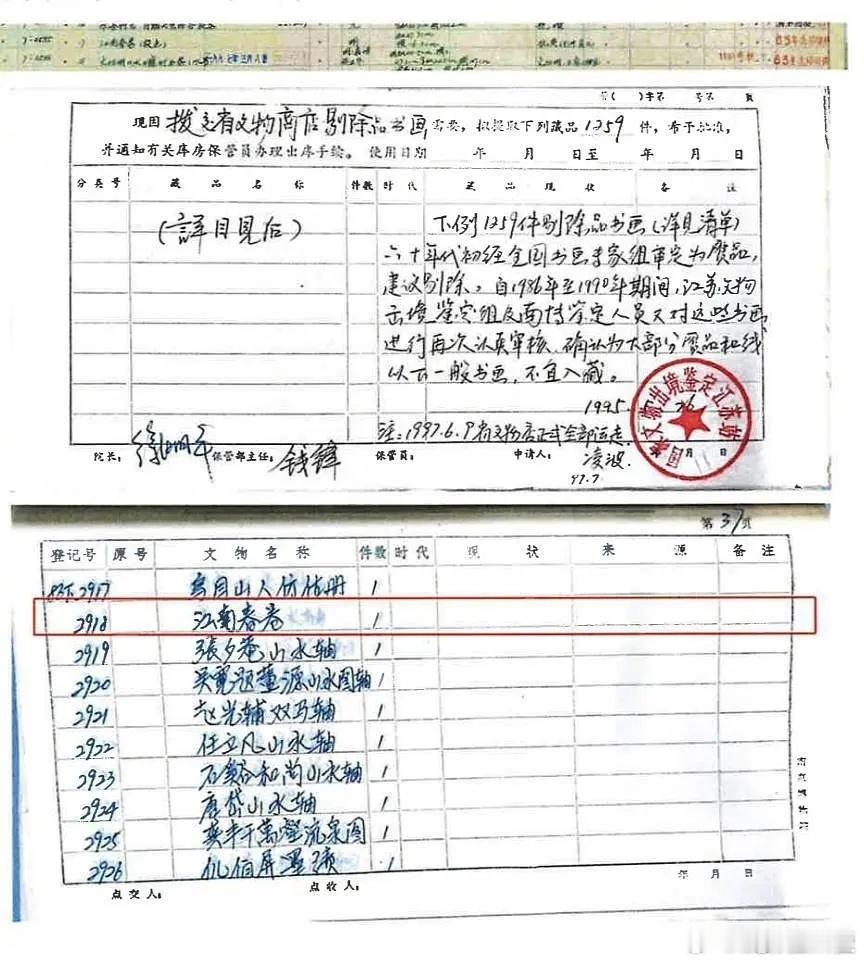 江南春卷(设色)
第( )字第 号第 页
现因 拨交省文物商店剔除品书画 需要,拟提取下列藏品 1259 件,希予批准,
并通知有关库房保管员办理出库手续。 使用日期 年 月 日至 年 月 日
分类号 藏品名称 件数 时代 藏品现状 备注
(詳目見后)
下例1259件剔除品书画(详見清单)
六十年代初经全国书画专家组审定为赝品,
建议剔除。自1986年至1990年期间,江苏文物
出境鉴定组及南博鉴定人员又对这些书画
进行再次认真审核,确认为大部分赝品和线
以下一般书画,不宜入藏。
1995.
注:1997.6.9省文物店正式全部运走
院长: 徐湖平 保管部主任: 钱锋 保管员: 申请人: 凌波
97.7
国家文物出境鉴定江苏站
月 日
第37页
登记号 原号 文物名称 件数 时代 现状 来源 备注
2917 1
2918 江南春卷 1
2919 張夕菴山水轴 1
2920 吴寬题董源山水图轴 1
2921 赵光辅双马轴 1
2922 任立凡山水轴 1
2923 石溪和尚山水轴 1
2924 唐岱山水轴 1
2925 千萬壑流泉图 1
2926 1
点交人: 点收人: 年 月 日